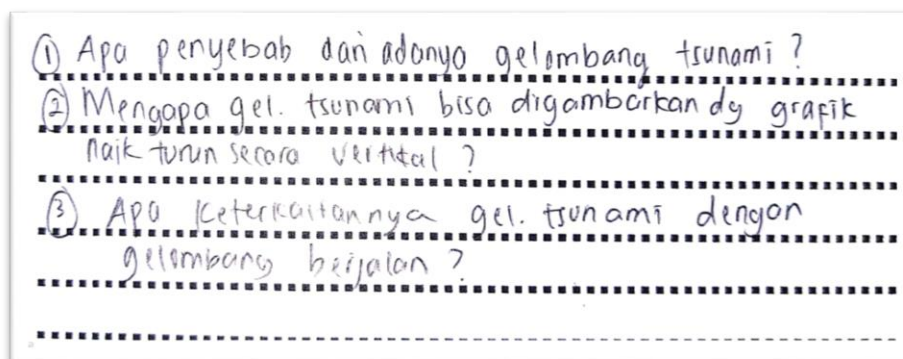 ① Apa penyebab dari adanya gelombang tsunami?
② Mengapa gel. tsunami bisa digambarkan dg grafik
naik turun secara vertikal?
③ Apa keterkaitannya gel. tsunami dengan
gelombang berjalan?